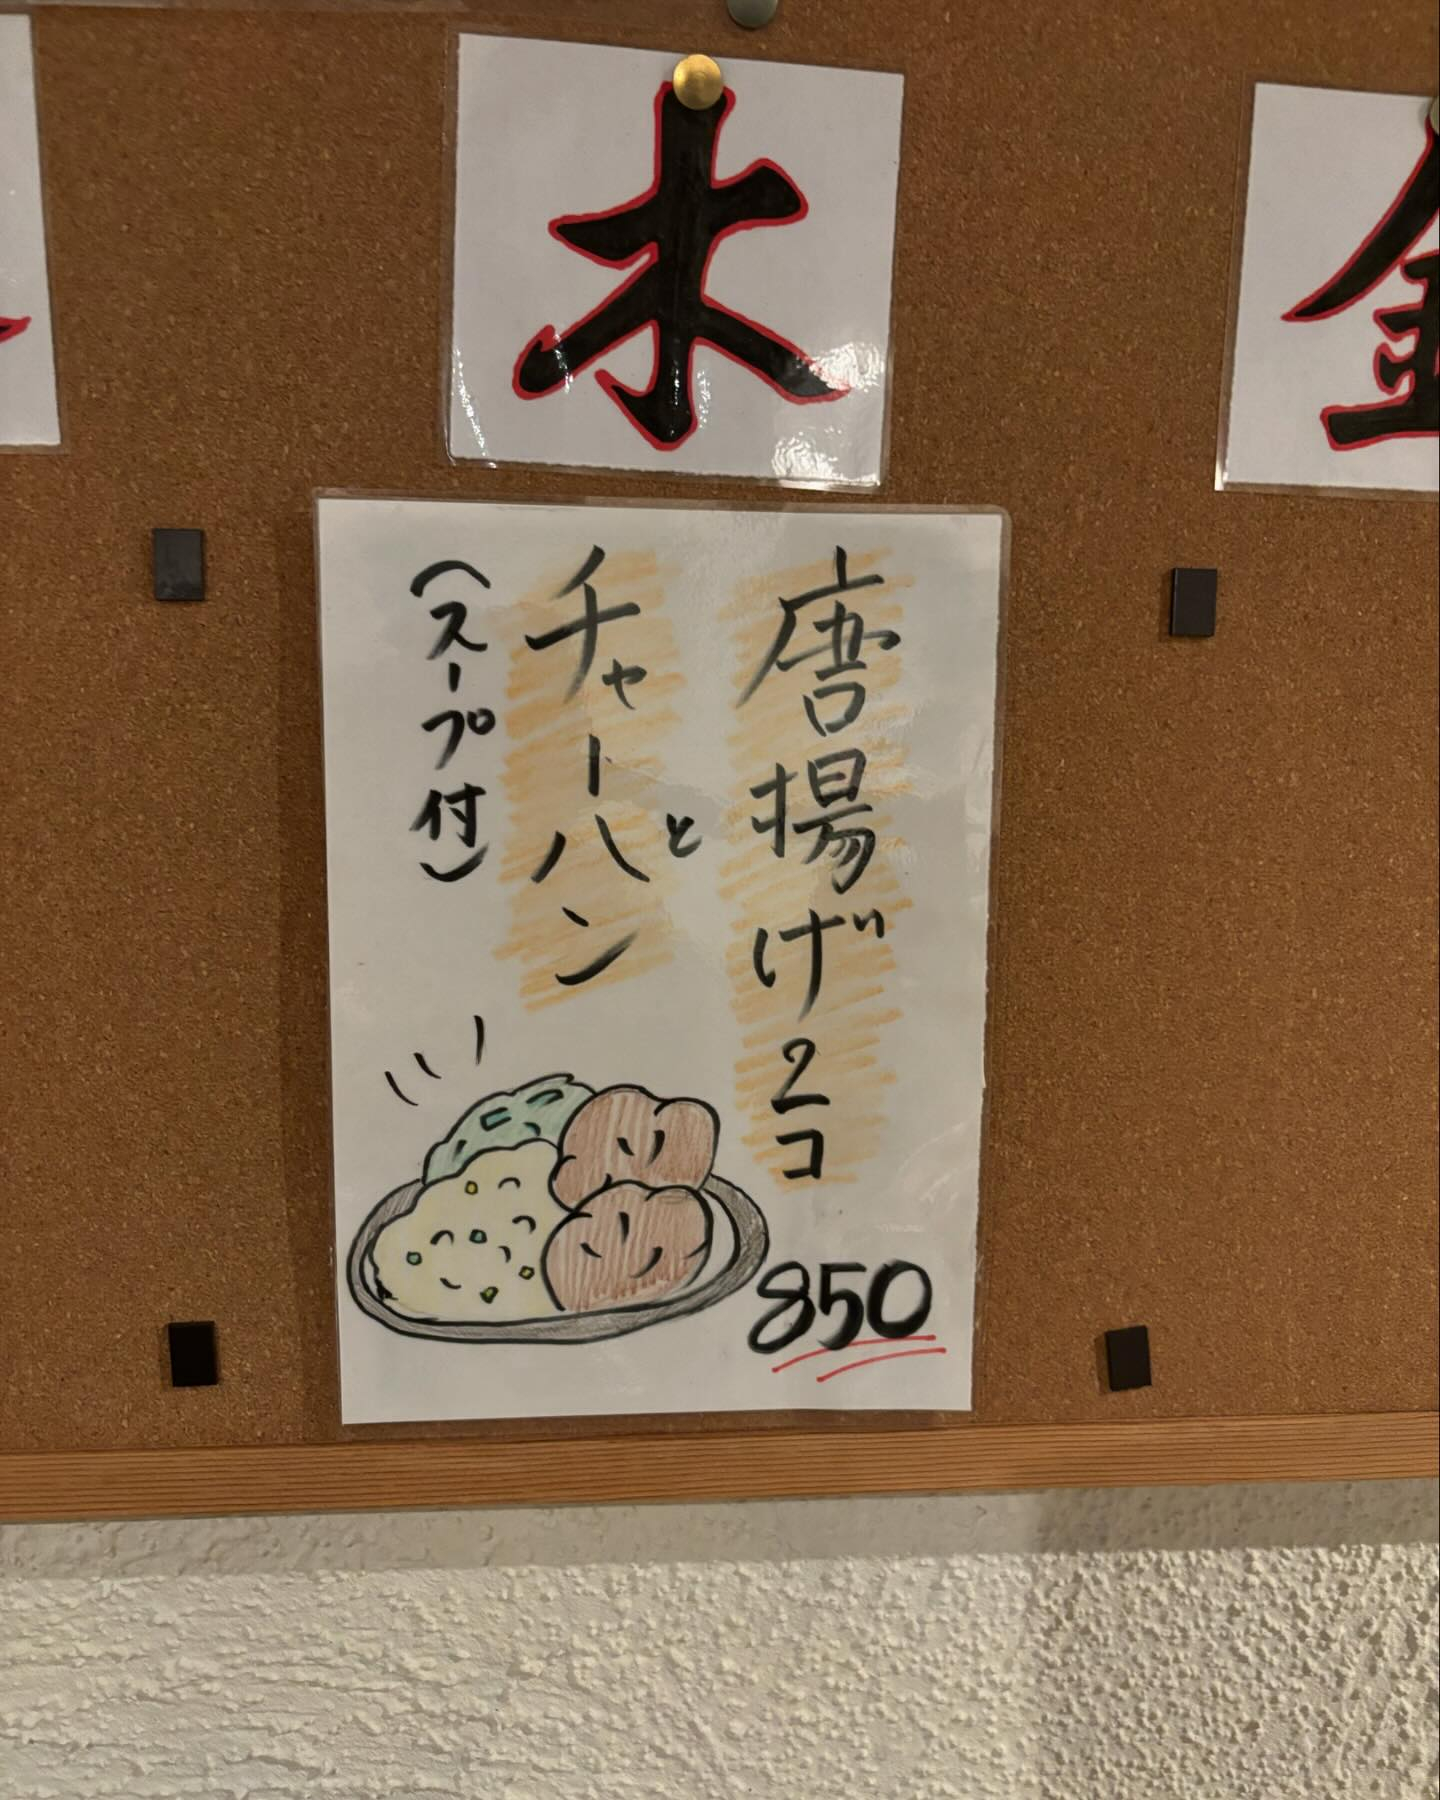 木
金
唐揚げ2コ
と
チャーハン
(スープ付)
850